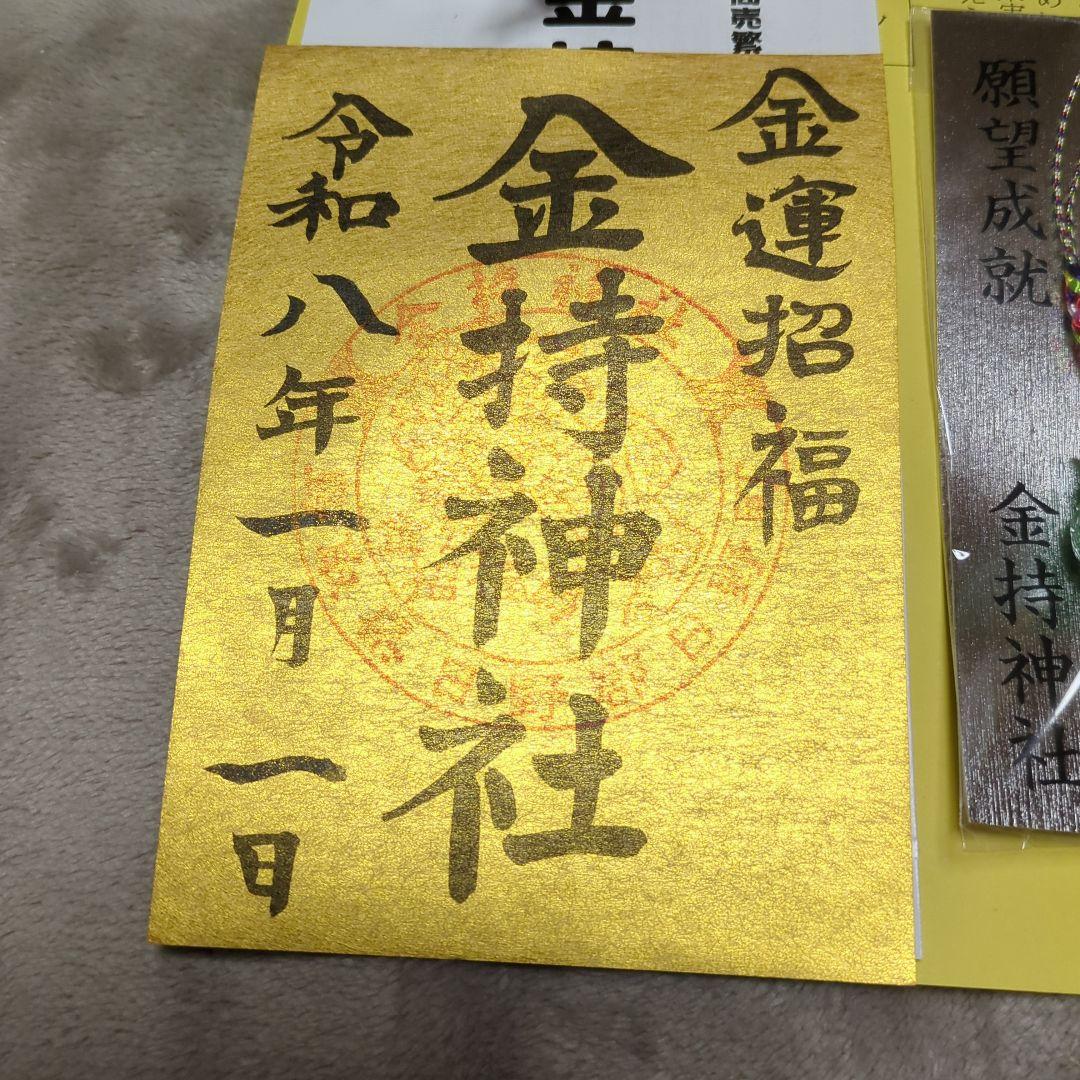 金運招福
金持神社
令和八年一月一日
願望成就
金持神社
商売繁
金持